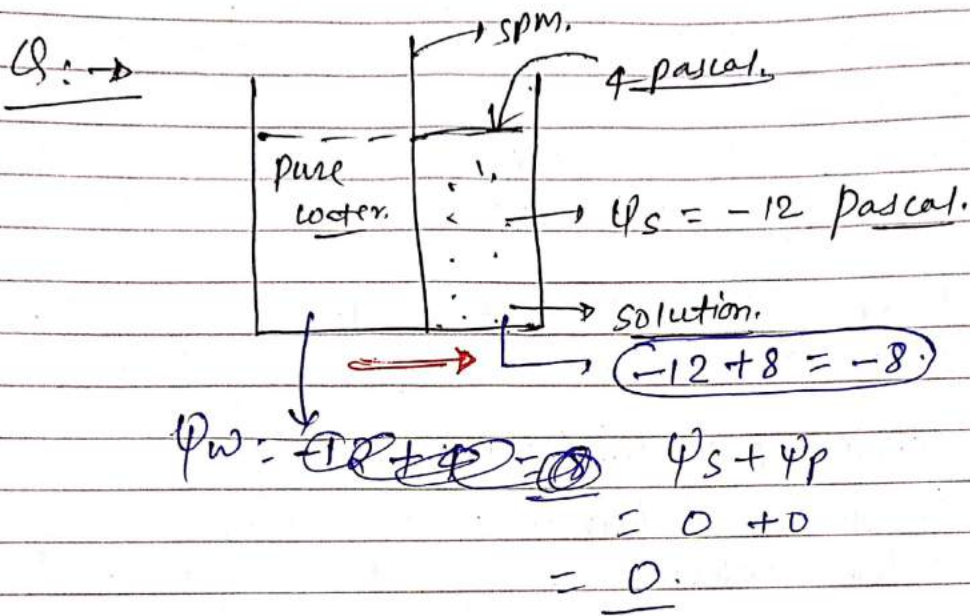 Q: →
→ spm.
4 pascal.
pure
water.
→ ψs = -12 pascal.
→ solution.
-12 + 8 = -8.
ψw = ψs + ψp
= 0 + 0
= 0.